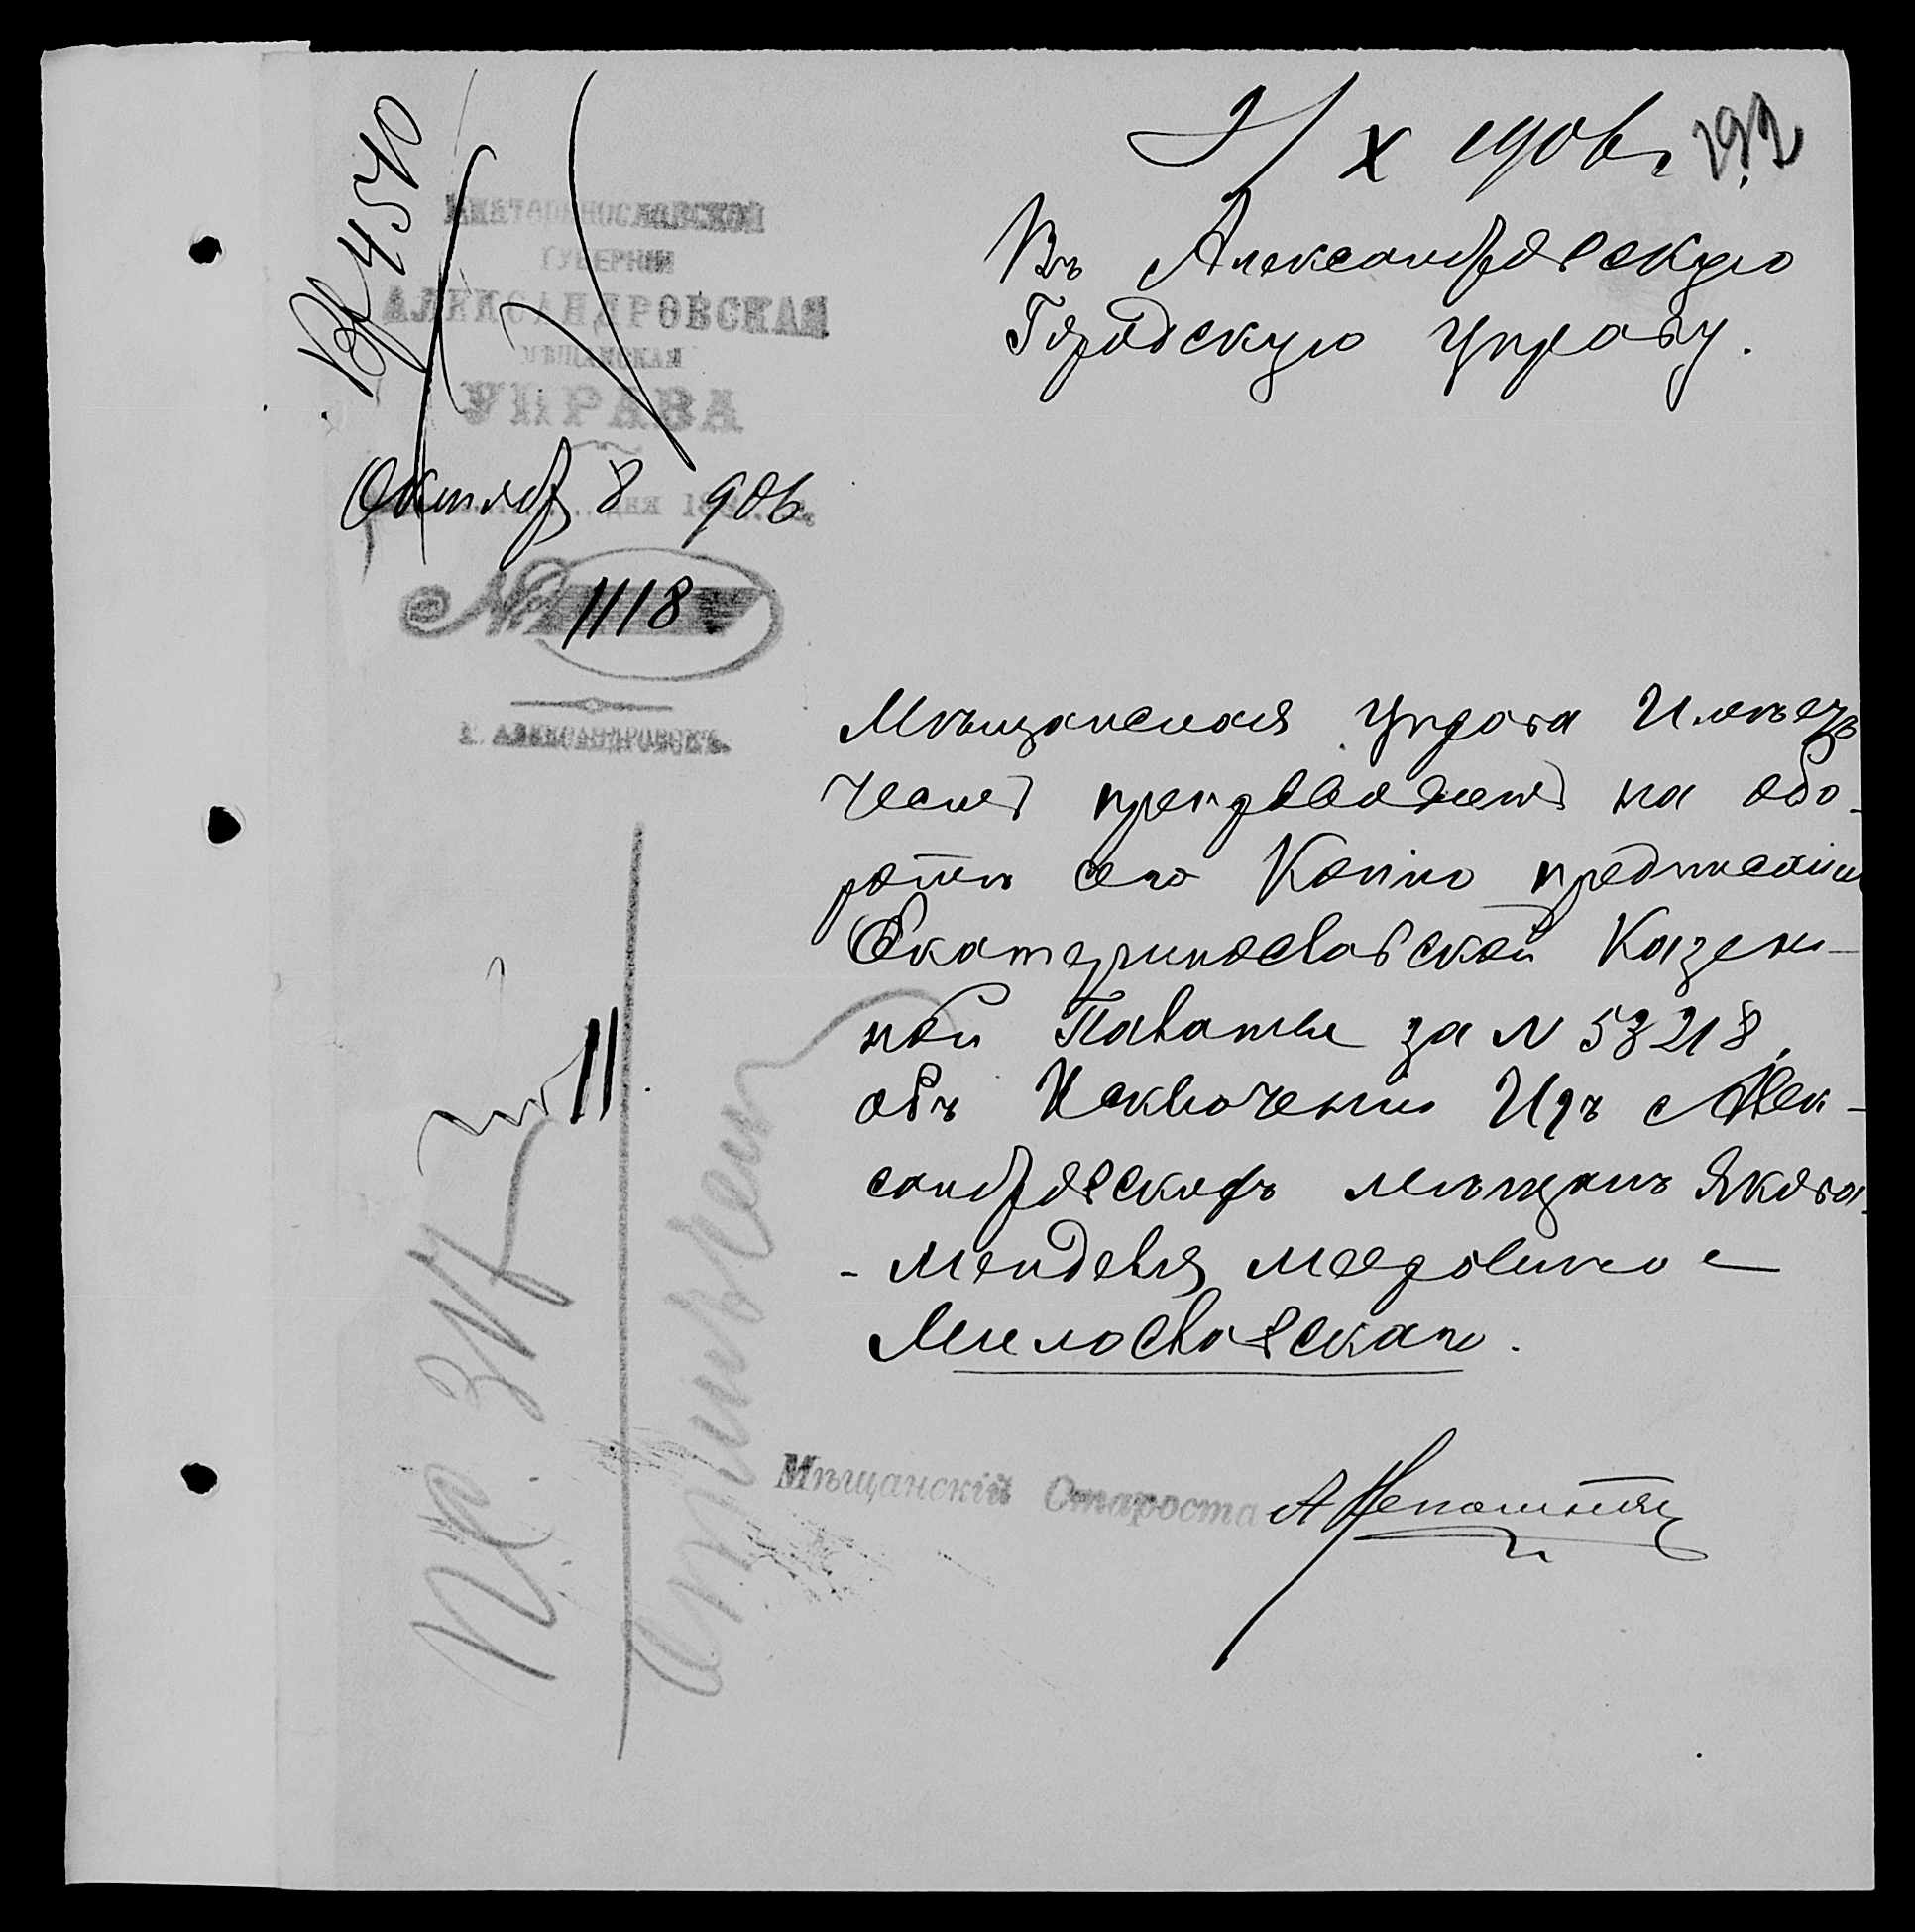 9/X 1906 г. 192
Вх 4540
ЕКАТЕРИНОСЛАВСКОЙ
ГУБЕРНІИ
АЛЕКСАНДРОВСКАЯ
МѢЩАНСКАЯ
УПРАВА
Октябр 8 дня 1906 г.
№ 1118
Г. АЛЕКСАНДРОВСКЪ.
Въ Александровскую
Городскую Управу.
Мѣщанская Управа Имѣетъ
честь препроводить на обо-
ротѣ сего Копію предписанія
Екатеринославской Казен-
ной Палаты за N 53218,
объ Исключеніи Изъ Алек-
сандровскихъ мѣщанъ Якова
- Менделя
Милославскаго.
Мѣщанскій Староста
отмѣчен